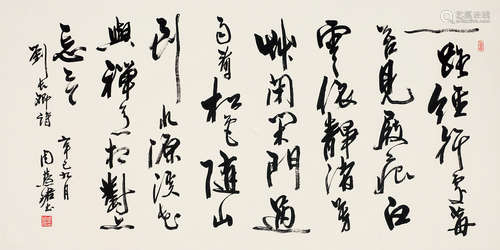 一路經行處莓
苔見履痕白
雲依靜渚芳
草閉閑門過
雨看松色隨山
到水源溪花
與禪意相對亦
忘言
劉長卿詩
辛巳九月
周慧珺書